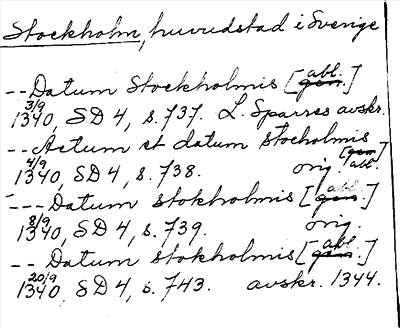 Stockholm, huvudstad i Sverige
-- Datum Stockholmis [gen. abl.]
3/9 1340, SD 4, s. 737. L. Sparres avskr.
-- Actum et datum stocholmis [gen. abl.]
4/9 1340, SD 4, s. 738. orig.
--- Datum stokholmis [gen. abl.]
8/9 1340, SD 4, s. 739. orig.
-- Datum stokholmis [gen. abl.]
20/9 1340, SD 4, s. 743. avskr. 1344.